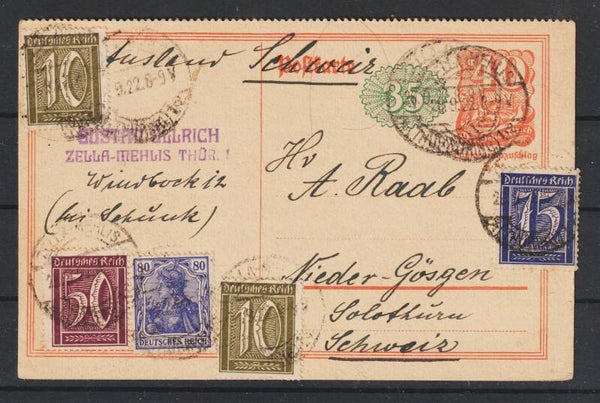 Deutsches Reich
10
Ausland Schweiz
Postkarte
9.22.8-9V
35
GUSTAV ULLRICH
ZELLA-MEHLIS THÜR. I
Hr
A. Raab
(bei Schunk)
Deutsches Reich
75
Nieder-Gösgen
Solothurn
Schweiz
Deutsches Reich
50
80 80
DEUTSCHES REICH
Deutsches Reich
10